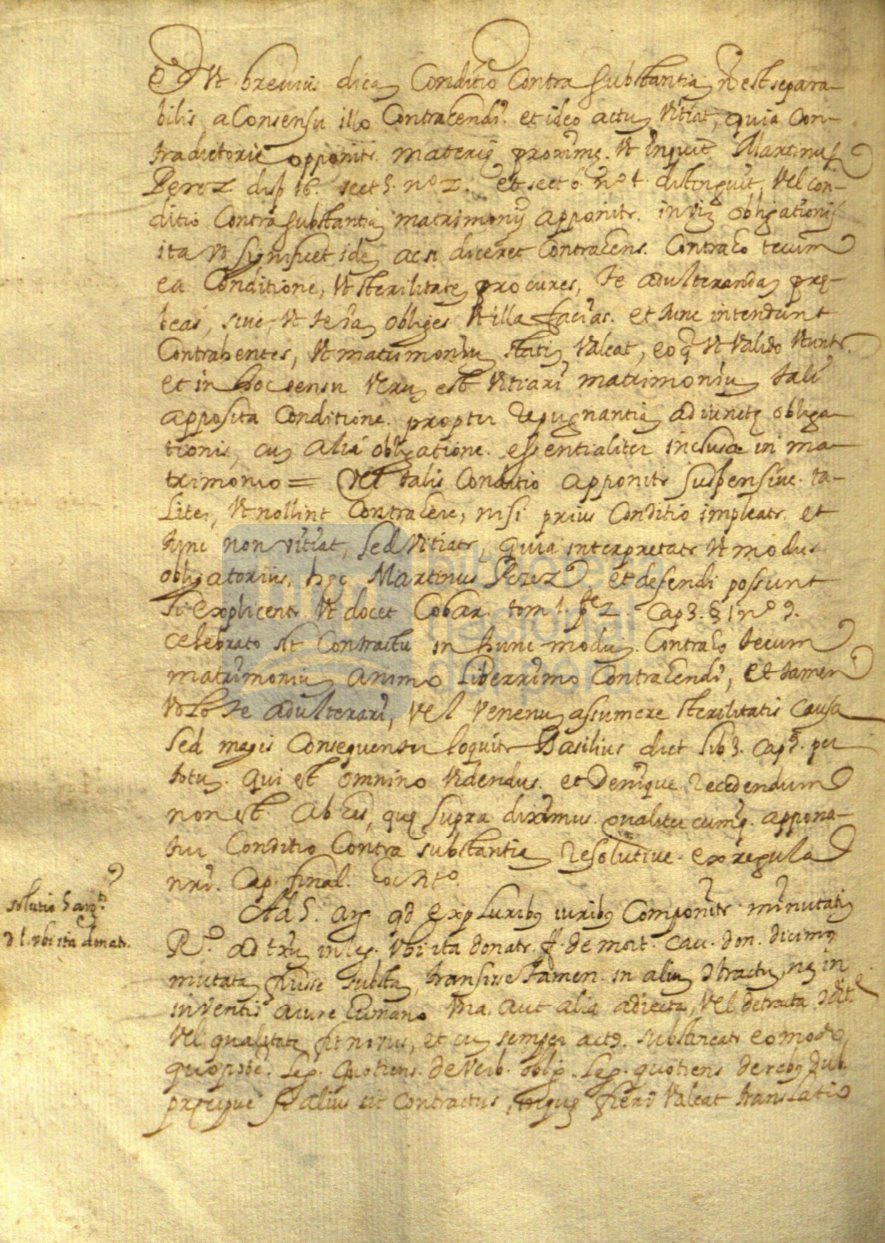 Vt brevius dicam Conditio Contra substantiam nõ est separa-
bilis a Consensu illo Contrahendi. et ideo actum Vitiat, quia Con-
tradictorie opponitr. materię proximę. Vt inquit Martinus
Perez disp 16. sect 5. nº 2. et sect 6. nº 1. distinguit, Vel con-
ditio Contra substantiam matrimonij apponitr. in vim obligationis
ita Vt significet idem ac si diceret Contrahens. Contraho tecum
ea Conditione, Vt sterilitatem procures, te adulterandam prę-
beas, sive, Vt te ad obliges Vt illa facias. et tunc intendunt
Contrahentes, Vt matrimonium statim Valeat, eoq Vt Valido Vtuntr.
et in hoc sensu Verum est Vitiari matrimonium tali
apposita Conditione. propter repugnantiam adiunctę obliga-
tionis, cum alia obligatione. essentialiter inclusa in ma-
trimonio = Vel talis Conditio apponitr suspensive. ta-
liter, Vt nollint Contrahere, nisi prius Conditio impleatr. et
tunc non vitiat, sed Vitiatr, quia interpretatr Vt modus
obligatorius, hęc Martinus Perez et defendi possunt
si explicentr Vt docet Cobar. tom 1. pte 2. Cap 3. § 1 nº 9.
celebrato sic Contractu in hunc modum. Contraho tecum
matrimonium animo liberrimo Contrahendi, et tamen
Volo te adulterari, Vel Venenum assumere sterilitatis Causa
sed magis Consequenter loquitr Basilius dict lib 3. Cap 9. per
totum. qui est omnino Videndus. et Denique recedendum
non est. ab eis, quę supra diximus. qualitercumq. appona-
tur Conditio Contra substantiam resolutive. ex regula
nri. Cap. final. hoc tto.
Ad 5. arg qd ex pluribus iuribus Componitr. minutatim
solutio 5 argti.
d l. vbi ita donatr.
Rº. ad txum in leg. Vbi ita donatr. ff. de mort. cau. don. dicimus
mutata fuisse substa, transive tamen. in alium Contractum, nam in
inventis a iure humano Vna. aut alia adiecta, Vel detracta
Vel qualitate fit novus, et cum semper substineatr eo modo
quo potest. leg. quotiens. de Verb. oblig. leg. quotiens de rebus dub.
pręcipue si alius sit Contractus, in quem fieri Valeat translatio